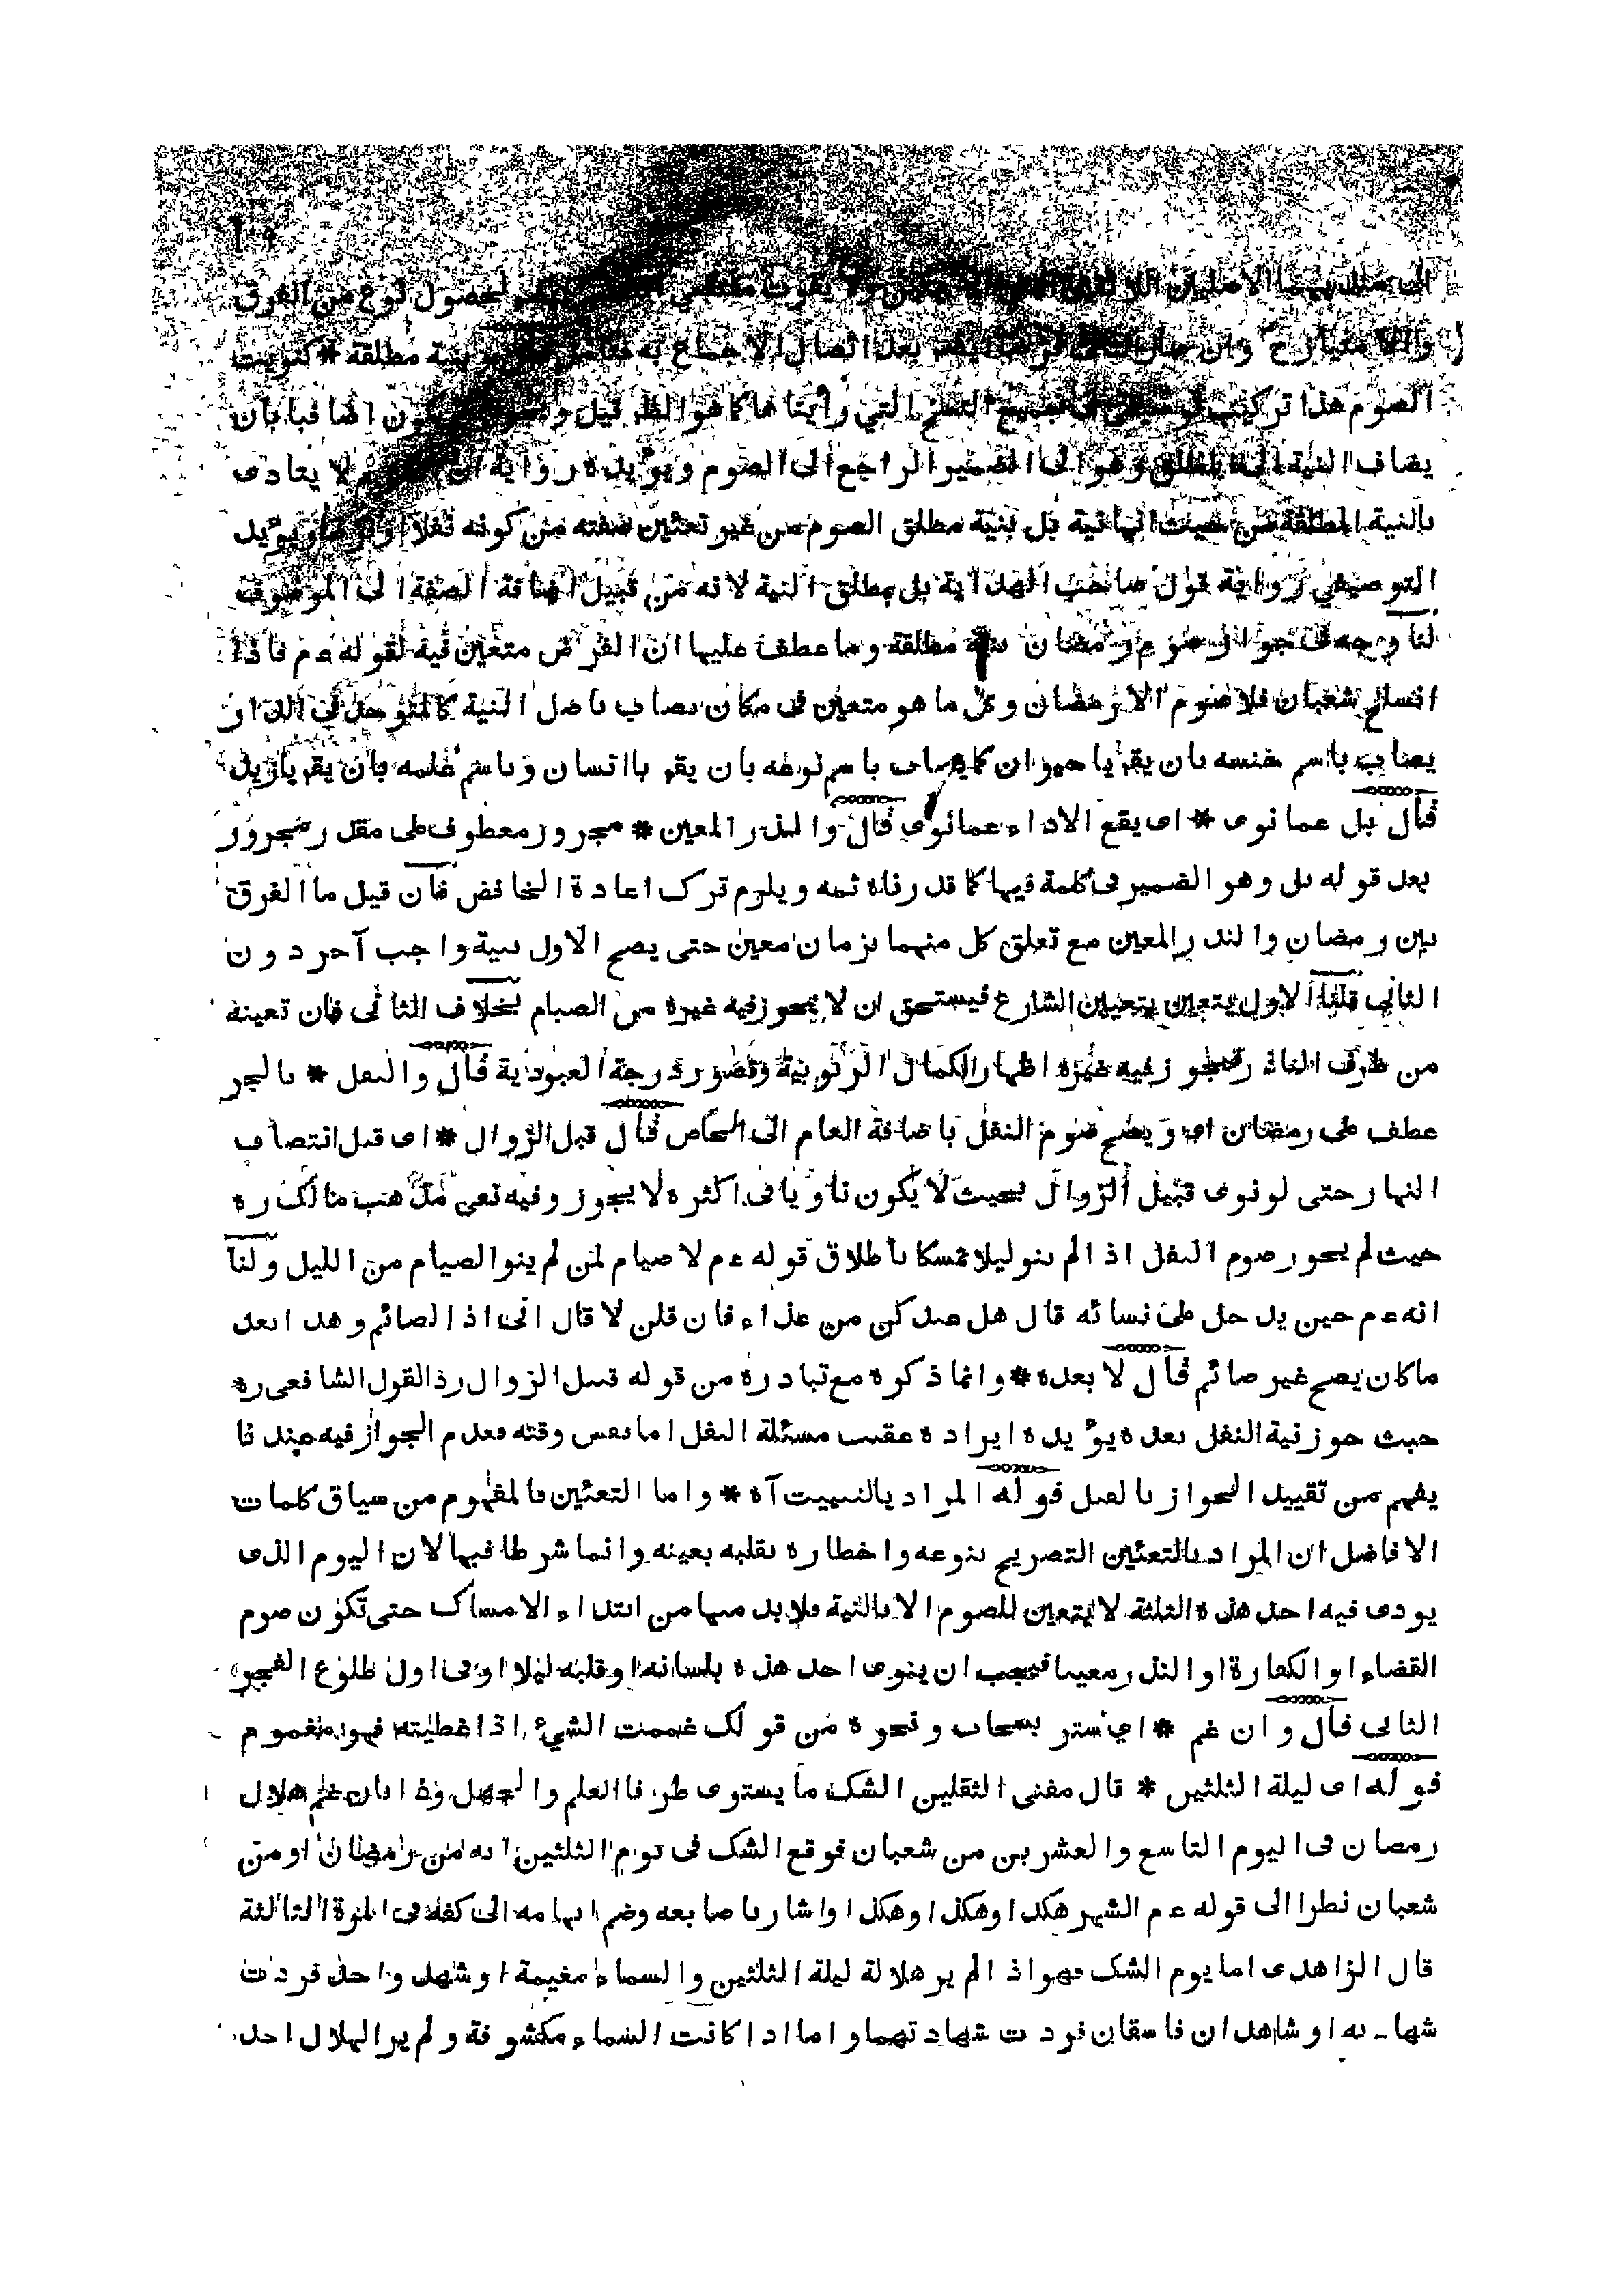 لحصول نوع من الفرق
بنية مطلقة * كنويت
الصوم هذا تركيب النسخ التي رأيناها كما هو الظ قيل اضافيا بان
يضاف النية الى وهو الى الضمير الراجع الى الصوم ويؤيده رواية لا يتادى
بالنية المطلقة من حيث انها نية بل بنية مطلق الصوم من غير تعيين صفته من كونه نفلا ويؤيد
التوصيفي رواية قول صاحب الهداية بل بمطلق النية لانه من قبيل اضافة الصفة الى الموصوف
لنا وجه في جواز صوم رمضان بنية مطلقة وما عطف عليها ان الفرض متعين فيه لقوله عم فاذا
انسلخ شعبان فلا صوم الا رمضان وكل ما هو متعين في مكان يصاب باصل النية كالمتوحد في الدار
يصاب باسم جنسه بان يقم يا حيوان كما يصاب باسم نوعه بان يقم يا انسان وباسم علمه بان يقم يا زيد
قال بل عما نوى * اى يقع الاداء عما نوى قال والنذر المعين * مجرور معطوف على مقدر مجرور
بعد قوله بل وهو الضمير في كلمة فيها كما قدرناه ثمه ويلزم ترك اعادة الخافض فان قيل ما الفرق
بين رمضان والنذر المعين مع تعلق كل منهما بزمان معين حتى يصح الاول بنية واجب آخر دون
الثاني قلنا الاول يتعين بتعيين الشارع فيستحق ان لا يجوز فيه غيره من الصيام بخلاف الثاني فان تعينه
من طرف الناذر فيجوز فيه غيره اظهارا لكمال الربوبية وقصور درجة العبودية قال والنفل * بالجر
عطف على رمضان اى ويصح صوم النفل باضافة العام الى الخاص قال قبل الزوال * اى قبل انتصاف
النهار حتى لو نوى قبيل الزوال بحيث لا يكون ناويا في اكثره لا يجوز وفيه نفي مذهب مالك ره
حيث لم يجوز صوم النفل اذا لم ينو ليلا تمسكا باطلاق قوله عم لا صيام لمن لم ينو الصيام من الليل ولنا
انه عم حين يدخل على نسائه قال هل عندكن من غذاء فان قلن لا قال اني اذا لصائم وهذا بعد
ما كان يصح غير صائم قال لا بعده * وانما ذكره مع تبادره من قوله قبل الزوال ردا لقول الشافعى ره
حيث جوز نية النفل بعده يؤيده ايراده عقيب مسئلة النفل اما نفس وقته فعدم الجواز فيه عندنا
يفهم من تقييد الجواز بالقبل قوله المراد بالتبييت آه * واما التعيين فالمفهوم من سياق كلمات
الافاضل ان المراد بالتعيين التصريح بنوعه واخطاره بقلبه بعينه وانما شرطا فيها لان اليوم الذى
يودى فيه احد هذه الثلثة لا يتعين للصوم الا بالنية فلا بد منها من ابتداء الامساك حتى تكون صوم
القضاء او الكفارة او النذر معينا فيجب ان ينوى احد هذه بلسانه او قلبه ليلا او في اول طلوع الفجر
الثاني قال وان غم * اي ستر بسحاب ونحوه من قولك غممت الشيء اذا غطيته فهو مغموم
قوله اى ليلة الثلثين * قال مفتى الثقلين الشك ما يستوى طرفا العلم والجهل وذا بان غم هلال
رمضان في اليوم التاسع والعشرين من شعبان فوقع الشك في يوم الثلثين انه من رمضان او من
شعبان نظرا الى قوله عم الشهر هكذا وهكذا وهكذا واشار باصابعه وضم ابهامه الى كفه في المرة الثالثة
قال الزاهدى اما يوم الشك فهو اذا لم ير هلالة ليلة الثلثين والسماء مغيمة او شهد واحد فردت
شهادته او شاهدان فاسقان فردت شهادتهما واما اذا كانت السماء مكشوفة ولم ير الهلال احد